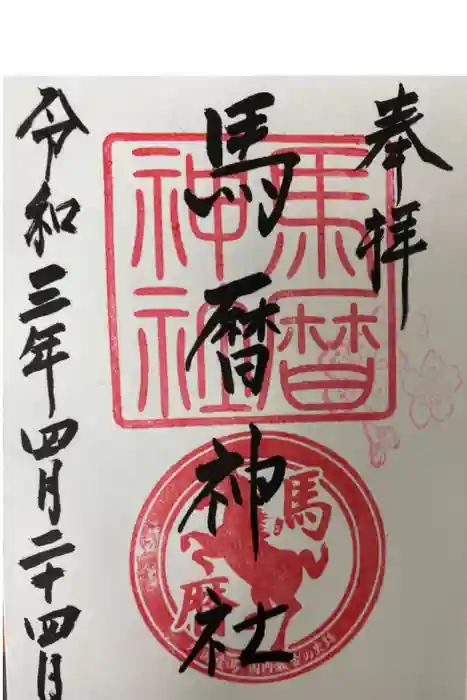 奉拝
馬暦神社
令和三年四月二十四日
馬暦
神社
馬
暦